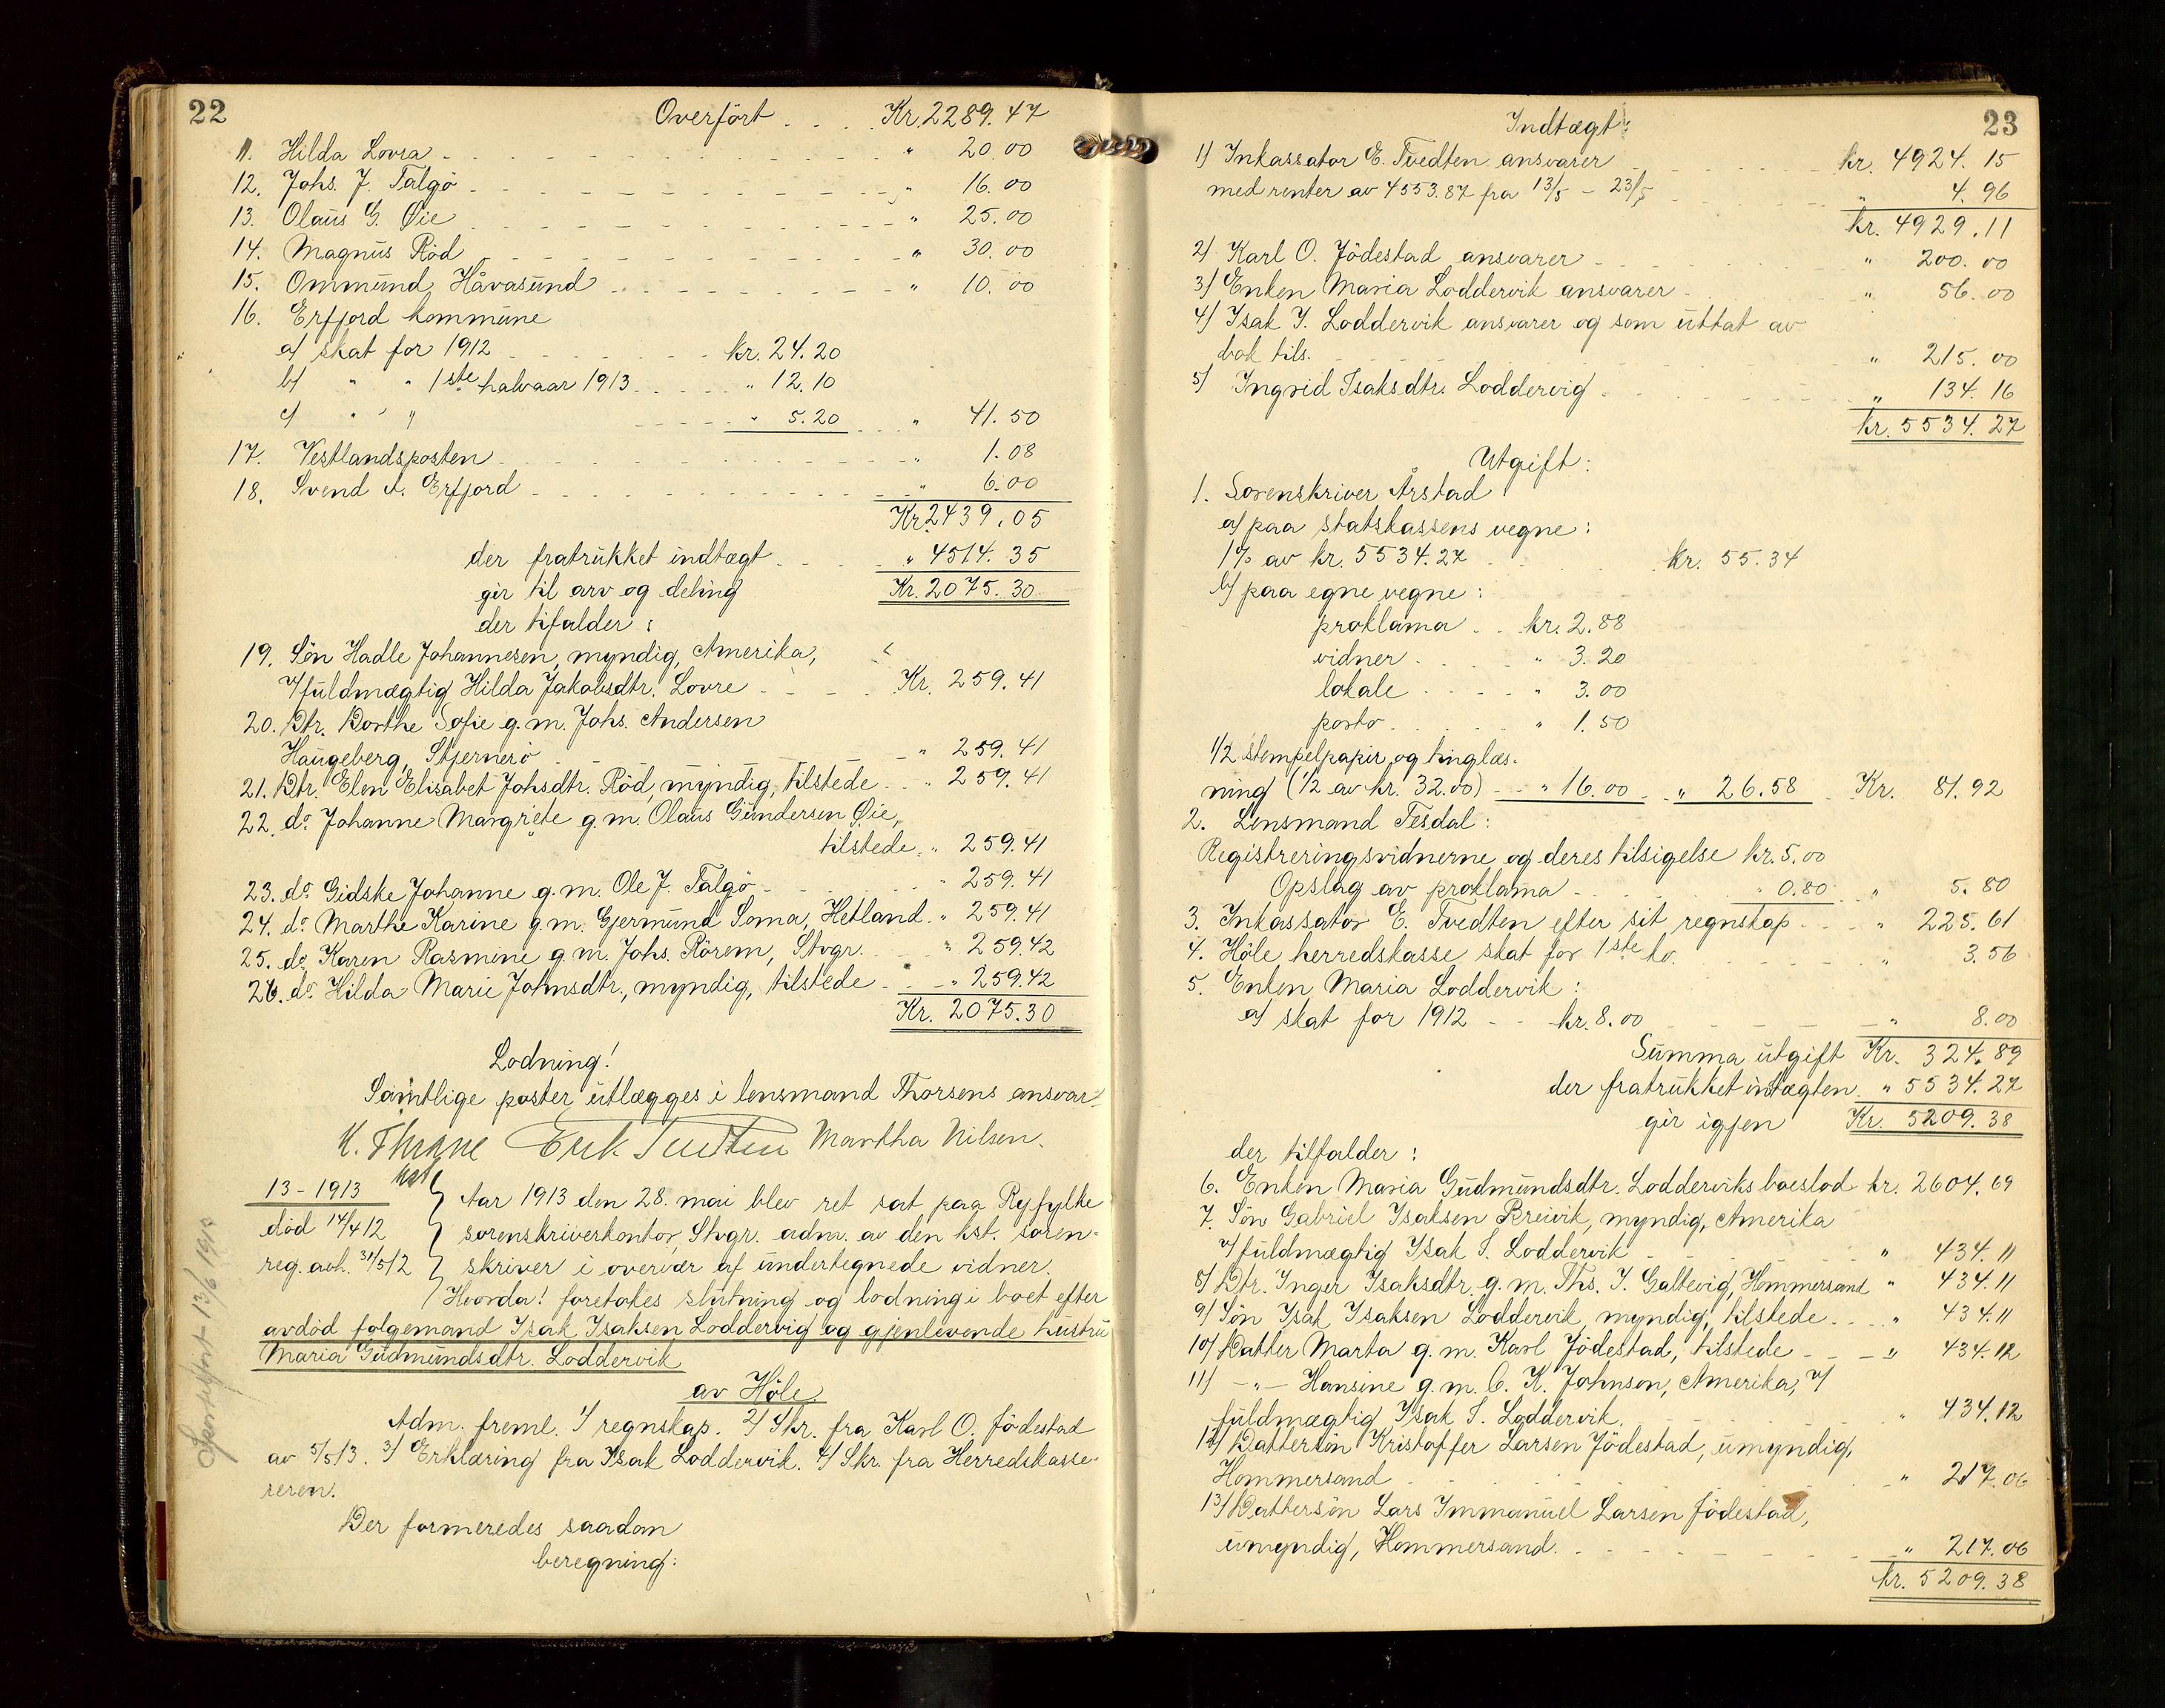 22
Overført . . . . Kr. 2289.47
11. Hilda Lovra - - - - " 20.00
12. Johs. J. Talgö - - - - " 16.00
13. Olaus G. Øie - - - - " 25.00
14. Magnus Röd - - - - " 30.00
15. Ommund Håvasund - - - - " 10.00
16. Erfjord kommune
a/ skat for 1912 - - - - kr. 24.20
b/ " " 1ste halvaar 1913 . . . . " 12.10
c/ " " - - - - " 5.20 . . . " 41.50
17. Vestlandsposten - - - - " 1.08
18. Svend A. Erfjord - - - - " 6.00
Kr. 2439.05
der fratrukket indtægt . . . . " 4514.35
gir til arv og deling Kr. 2075.30
der tifalder:
19. Sön Hadle Johannesen, myndig, Amerika,
v/fuldmægtig Hilda Jakobsdtr. Lovre - - - Kr. 259.41
20. Dtr. Borthe Sofie g.m. Johs. Andersen
Haugeberg, Stjernerö - - - - " 259.41
21. Dtr. Elen Elisabet Johsdtr. Röd, myndig, tilstede . . " 259.41
22. do Johanne Margrete g.m. Olaus Gundersen Øie,
tilstede. " 259.41
23. do Gidske Johanne g.m. Ole J. Talgö - - - " 259.41
24. do Marthe Karine g.m. Gjermund Soma, Hetland. " 259.41
25. do Karen Rasmine g.m. Johs. Rörem, Stvgr. . . " 259.42
26. do Hilda Marie Johnsdtr., myndig, tilstede - - " 259.42
Kr. 2075.30
Lodning!
Samtlige poster utlægges i lensmand Thorsens ansvar.
K. Thrane Erik Tvedten Martha Nilsen.
13-1913
död 14/4 12
reg. avh. 31/5 12
Aar 1913 den 28. mai blev ret sat paa Ryfylke
sorenskriverkontor, Stvgr. adm. av den kst. soren-
skriver i overvær af undertegnede vidner.
Hvorda! foretokes slutning og lodning i boet efter
avdöd følgemand Isak Isaksen Loddervig og gjenlevende hustru
Maria Gudmundsdtr. Loddervik
av Höle.
Adm. freml. 1/ regnskap. 2/ Skr. fra Karl O. Jödestad
av 5/5 13. 3/ Erklæring fra Isak Loddervik. 4/ Skr. fra Herredskasse-
reren.
Der formeredes saadan
beregning:
13/6 1913
23
Indtægt:
1) Inkassator E. Tvedten ansvarer - - - kr. 4924.15
med renter av 4553.87 fra 13/5 - 23/5 - - - " 4.96
kr. 4929.11
2) Karl O. Jödestad ansvarer - - - " 200.00
3) Enken Maria Loddervik ansvarer - - - " 56.00
4) Isak I. Loddervik ansvarer og som uttat av
bok tils. - - - " 215.00
5) Ingrid Isaksdtr. Loddervig . - - - " 134.16
kr. 5534.27
Utgift:
1. Sorenskriver Årstad
a/ paa statskassens vegne:
1% av kr. 5534.27 . . . kr. 55.34
b/ paa egne vegne:
proklama . . kr. 2.88
vidner . . . . " 3.20
lokale . . . . " 3.00
porto . . . . " 1.50
1/2 stempelpapir og tinglæs-
ning (1/2 av kr. 32.00) - - " 16.00 . . " 26.58 . Kr. 81.92
2. Lensmand Tesdal:
Registreringsvidnerne og deres tilsigelse kr. 5.00
Opslag av proklama - - - " 0.80 " 5.80
3. Inkassator E. Tvedten efter sit regnskap . . . " 225.61
4. Höle herredskasse skat for 1ste hv. - - - " 3.56
5. Enken Maria Loddervik:
a/ skat for 1912 - - kr. 8.00 - - - " 8.00
Summa utgift Kr. 324.89
der fratrukket indtægten . " 5534.27
gir igjen Kr. 5209.38
der tilfalder:
6. Enken Maria Gudmundsdtr. Lodderviks boeslod kr. 2604.69
7. Sön Gabriel Isaksen Breivik, myndig, Amerika
v/fuldmægtig Isak I. Loddervik - - - " 434.11
8/ Dtr. Inger Isaksdtr. g.m. Ths. I. Galtevig, Hommersand " 434.11
9/ Sön Isak Isaksen Loddervik, myndig, tilstede . . . " 434.11
10/ Datter Marta g.m. Karl Jödestad, tilstede - - - " 434.12
11/ -"- Hansine g.m. C. K. Johnson, Amerika, v/
fuldmægtig Isak I. Loddervik. - - - " 434.12
12/ Dattersön Kristoffer Larsen Jödestad, umyndig,
Hommersand - - - " 217.06
13/ Dattersön Lars Immanuel Larsen Jödestad,
umyndig, Hommersand. - - - " 217.06
kr. 5209.38